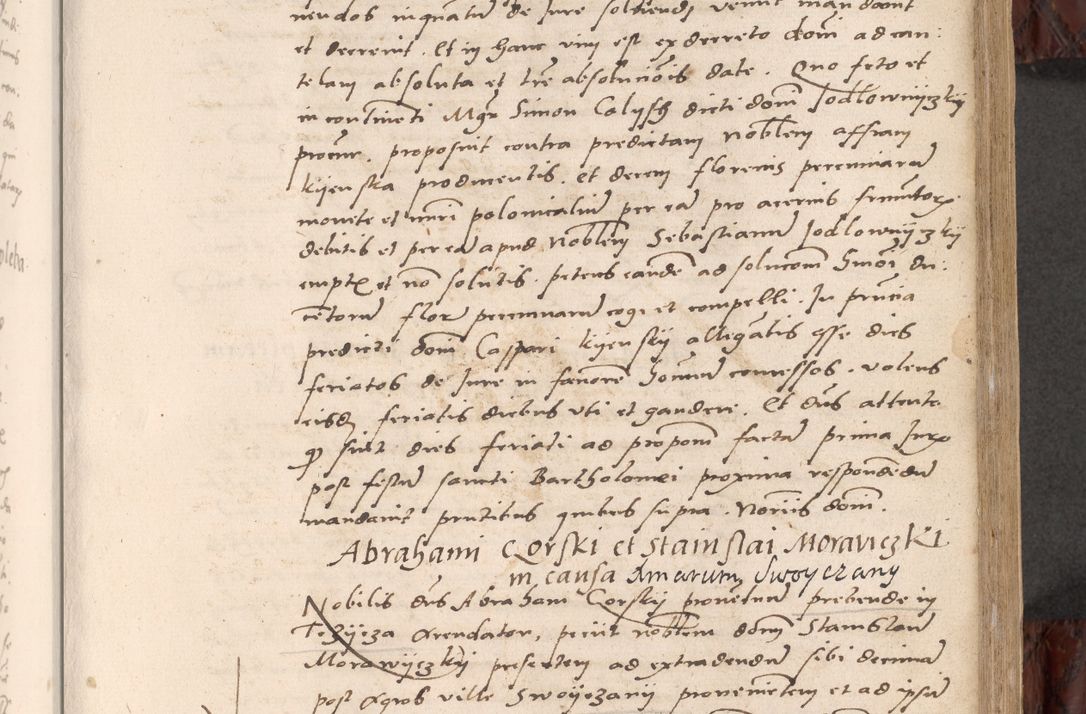 nendos inquantum de Jure soluendi venint mandauit
et decreuit. Et in hanc vim est ex decreto domini ad cau:
telam absoluta et lre absolucionis date. Quo facto et
in continenti Mgr Simon Calysch dicti domini Jodlowniczky
procur. proposuit contra predictam Noblem affram
Kijenska producentis. et decem florenis pecuniarum
monete et numeri polonicalium per eam pro aceruis frumentorum
debitis et per eam apud Noblem Sebastianum Jodlownijczky
emptis et non solutis. petens eandem ad solucionem Summe du:
centorum flor pecuniarum cogi et compelli. In presencia
predicti domini Caspari Kijenskij allegantis esse dies
feriatos de Jure in fauorem hominum concessos. volens
eisdem feriatis diebus vti et gaudere. Et dns attento
quod sint dies feriati ad proponem factam prima Juris
post festum sancti Bartholomei proxima respondendum
mandauit presentibus quibus supra. Noriis domini.
Abrahami Gorski et Stainslai Moraviczki
in causa Amarum Swoyczany
Nobilis dns Abraham Gorskij prouentuum prebende in
Tczijcza Arendator, peciit noblem domini Stanislaum
Morawijczkij presentem ad extradendum sibi decimam
post Agros ville Swoijczanij prouenientem et ad ipsum